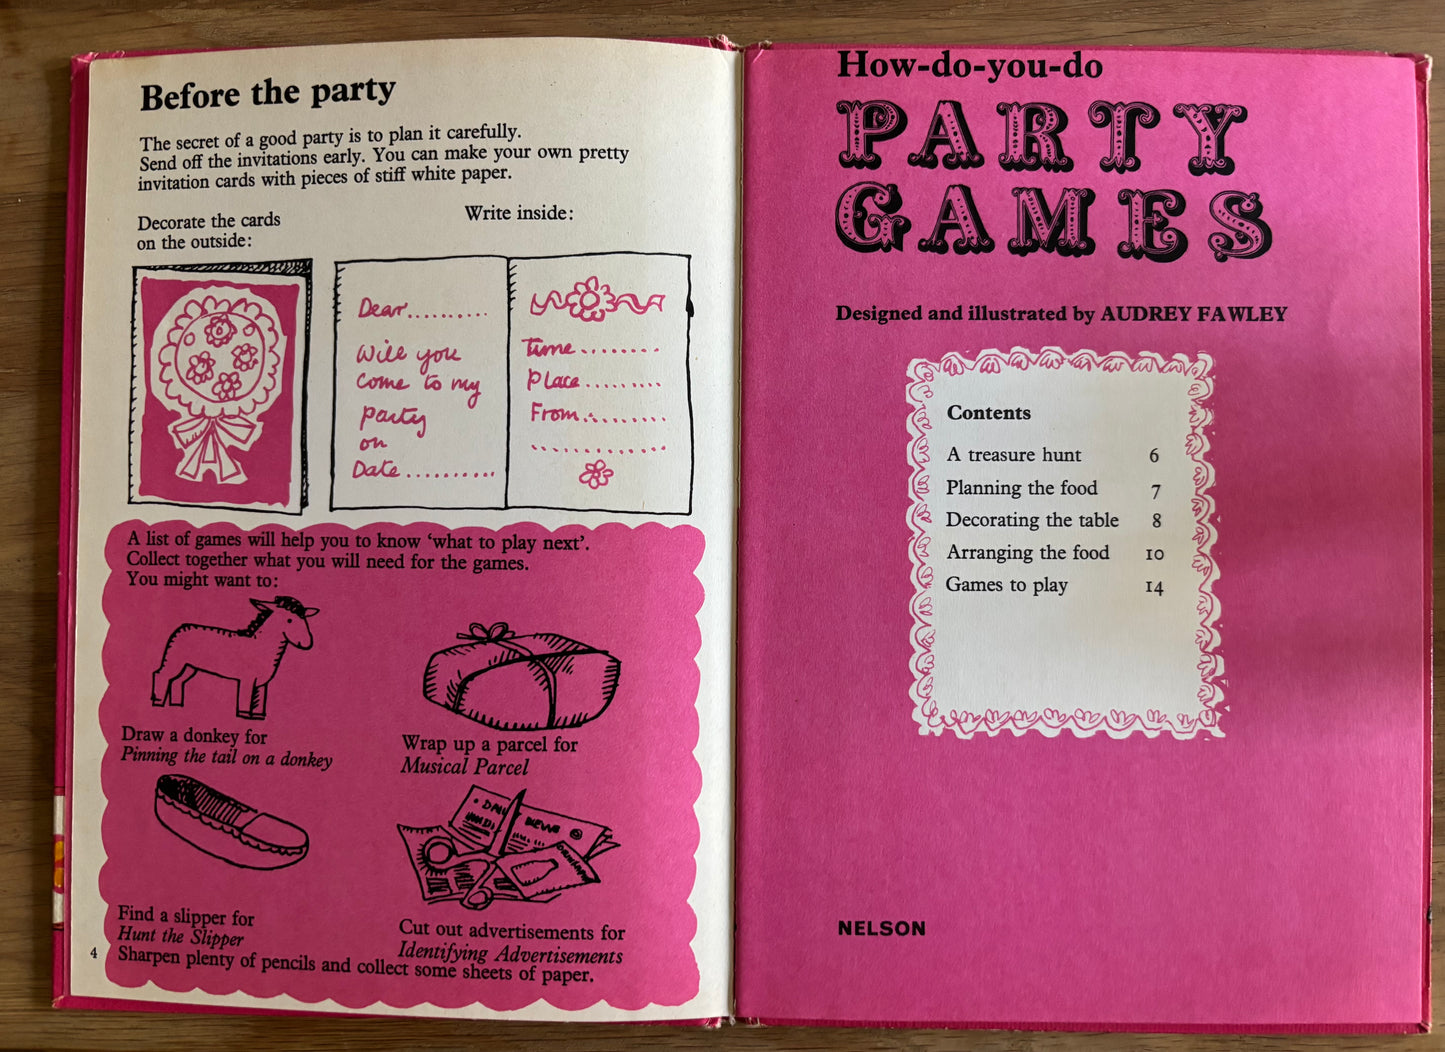 Before the party
The secret of a good party is to plan it carefully.
Send off the invitations early. You can make your own pretty
invitation cards with pieces of stiff white paper.
Decorate the cards
on the outside:
Write inside:
Dear..........
Will you
come to my
party
on
Date..........
Time........
Place.........
From.........
A list of games will help you to know ‘what to play next’.
Collect together what you will need for the games.
You might want to:
Draw a donkey for
Pinning the tail on a donkey
Wrap up a parcel for
Musical Parcel
NEWS
Find a slipper for
Hunt the Slipper
Cut out advertisements for
Identifying Advertisements
Sharpen plenty of pencils and collect some sheets of paper.
4
How-do-you-do
PARTY
GAMES
Designed and illustrated by AUDREY FAWLEY
Contents
A treasure hunt 6
Planning the food 7
Decorating the table 8
Arranging the food 10
Games to play 14
NELSON